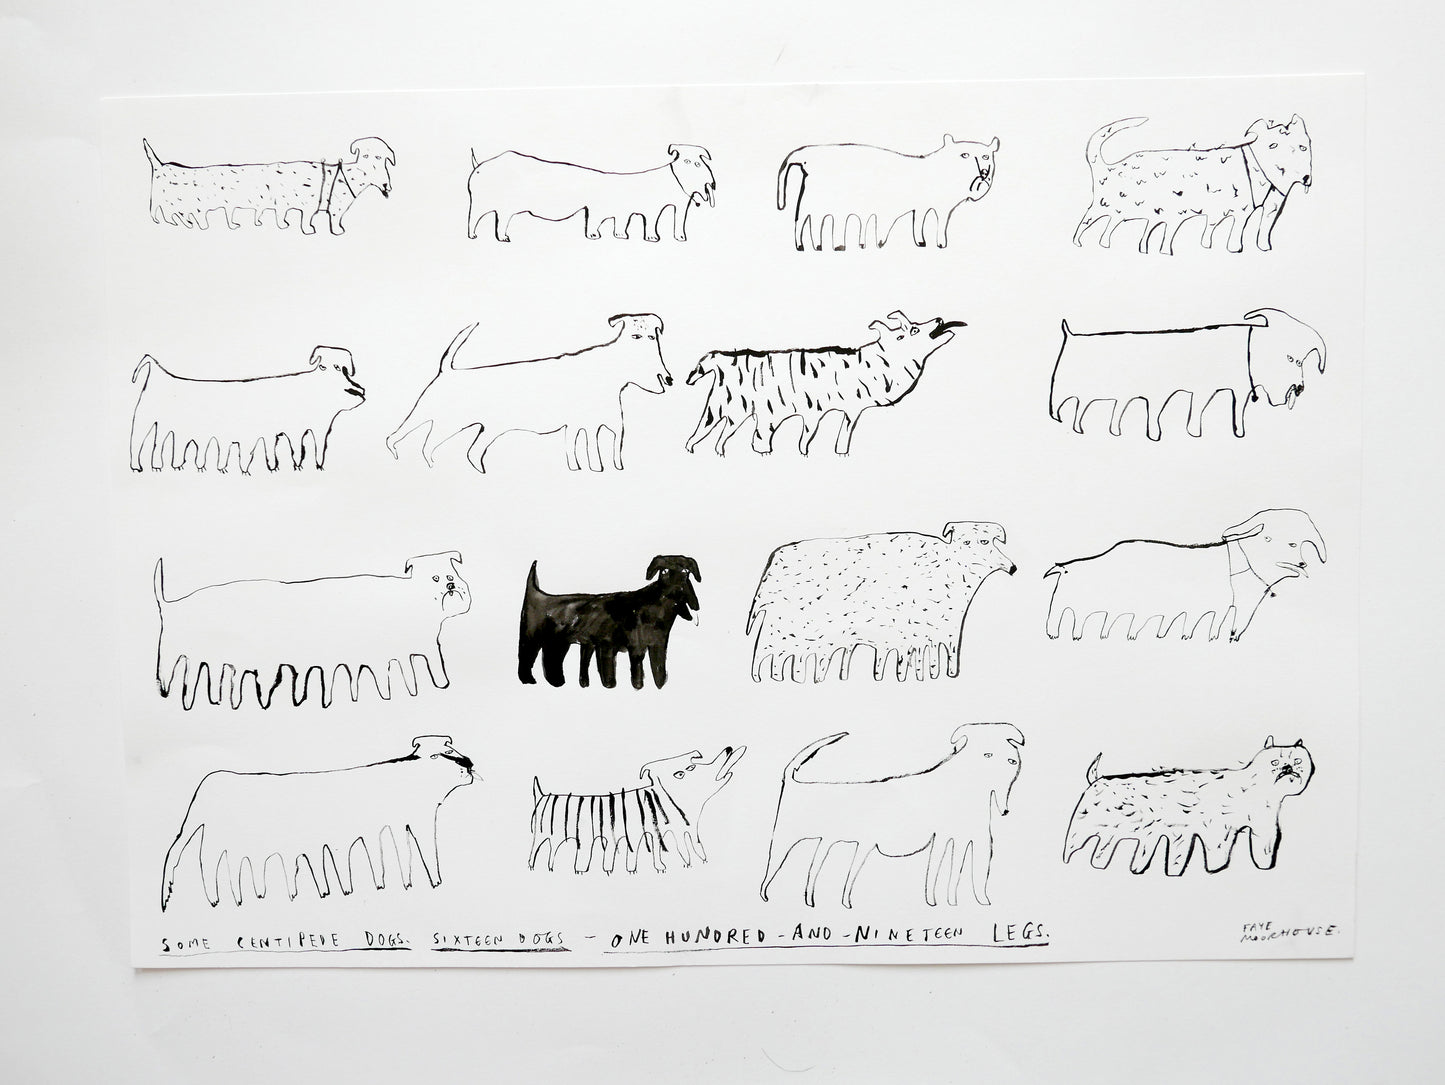 SOME CENTIPEDE DOGS. SIXTEEN DOGS - ONE HUNDRED-AND-NINETEEN LEGS.
FAYE
MOORHOUSE.